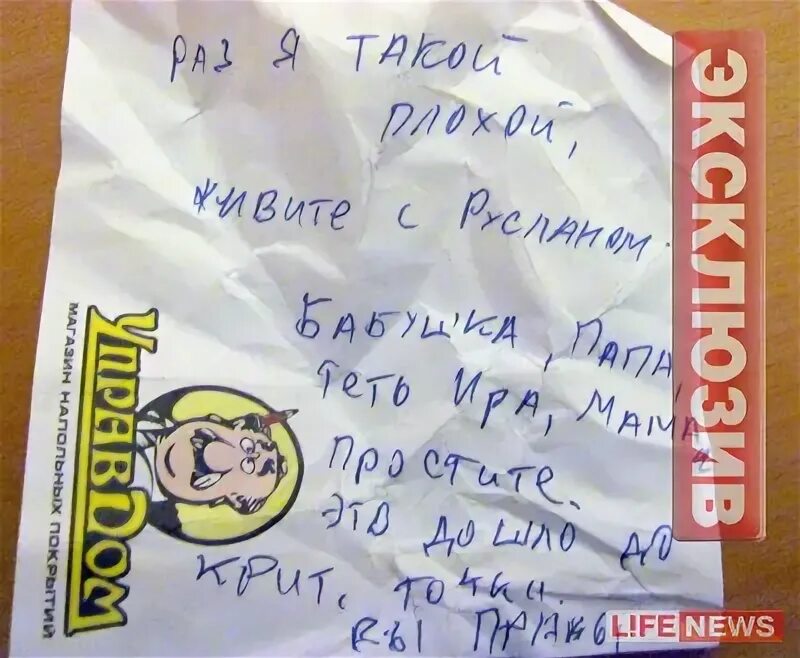 РАЗ Я ТАКОЙ
ПЛОХОЙ,
ЖИВИТЕ С РУСЛАНОМ.
БАБУШКА, ПАПА,
ТЕТЬ ИРА, МАМА
ПРОСТИТЕ.
ЭТО ДОШЛО ДО
КРИТ. ТОЧКИ.
ВЫ
УПРАВДОМ
МАГАЗИН НАПОЛЬНЫХ ПОКРЫТИЙ
ЭКСКЛЮЗИВ
L!FE NEWS